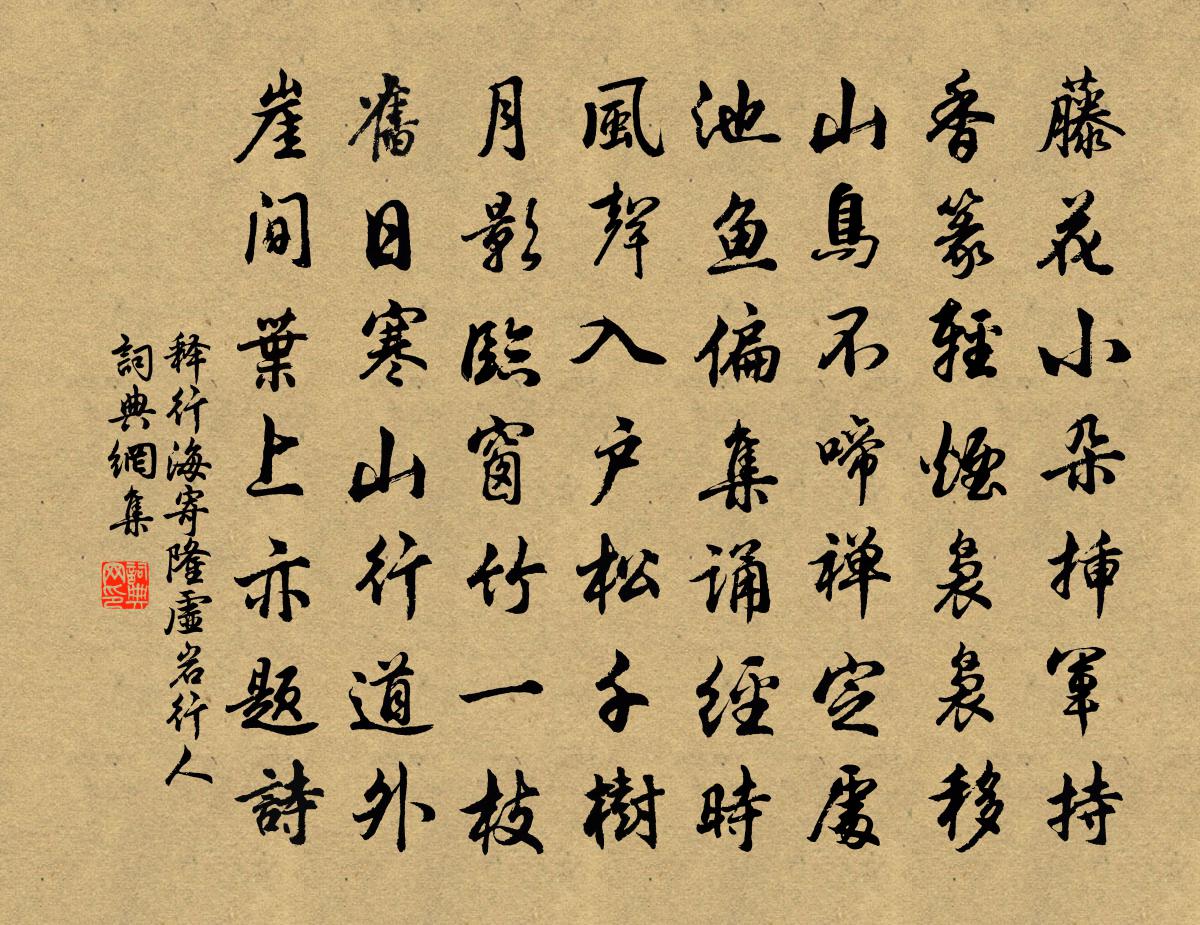 藤花小朵插軍持
香篆輕煙裊裊移
山鳥不啼禅定處
池鱼偏集诵經時
風聲入户松千樹
月影臨窗竹一枝
舊日寒山行道外
崖间葉上亦题詩
释行海寄隆虚岩行人
詞典網集
詞典网印